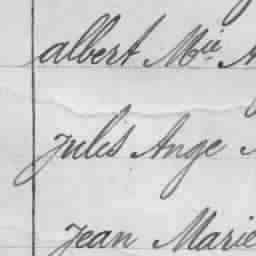 albert Mie
Jules Ange
Jean Marie